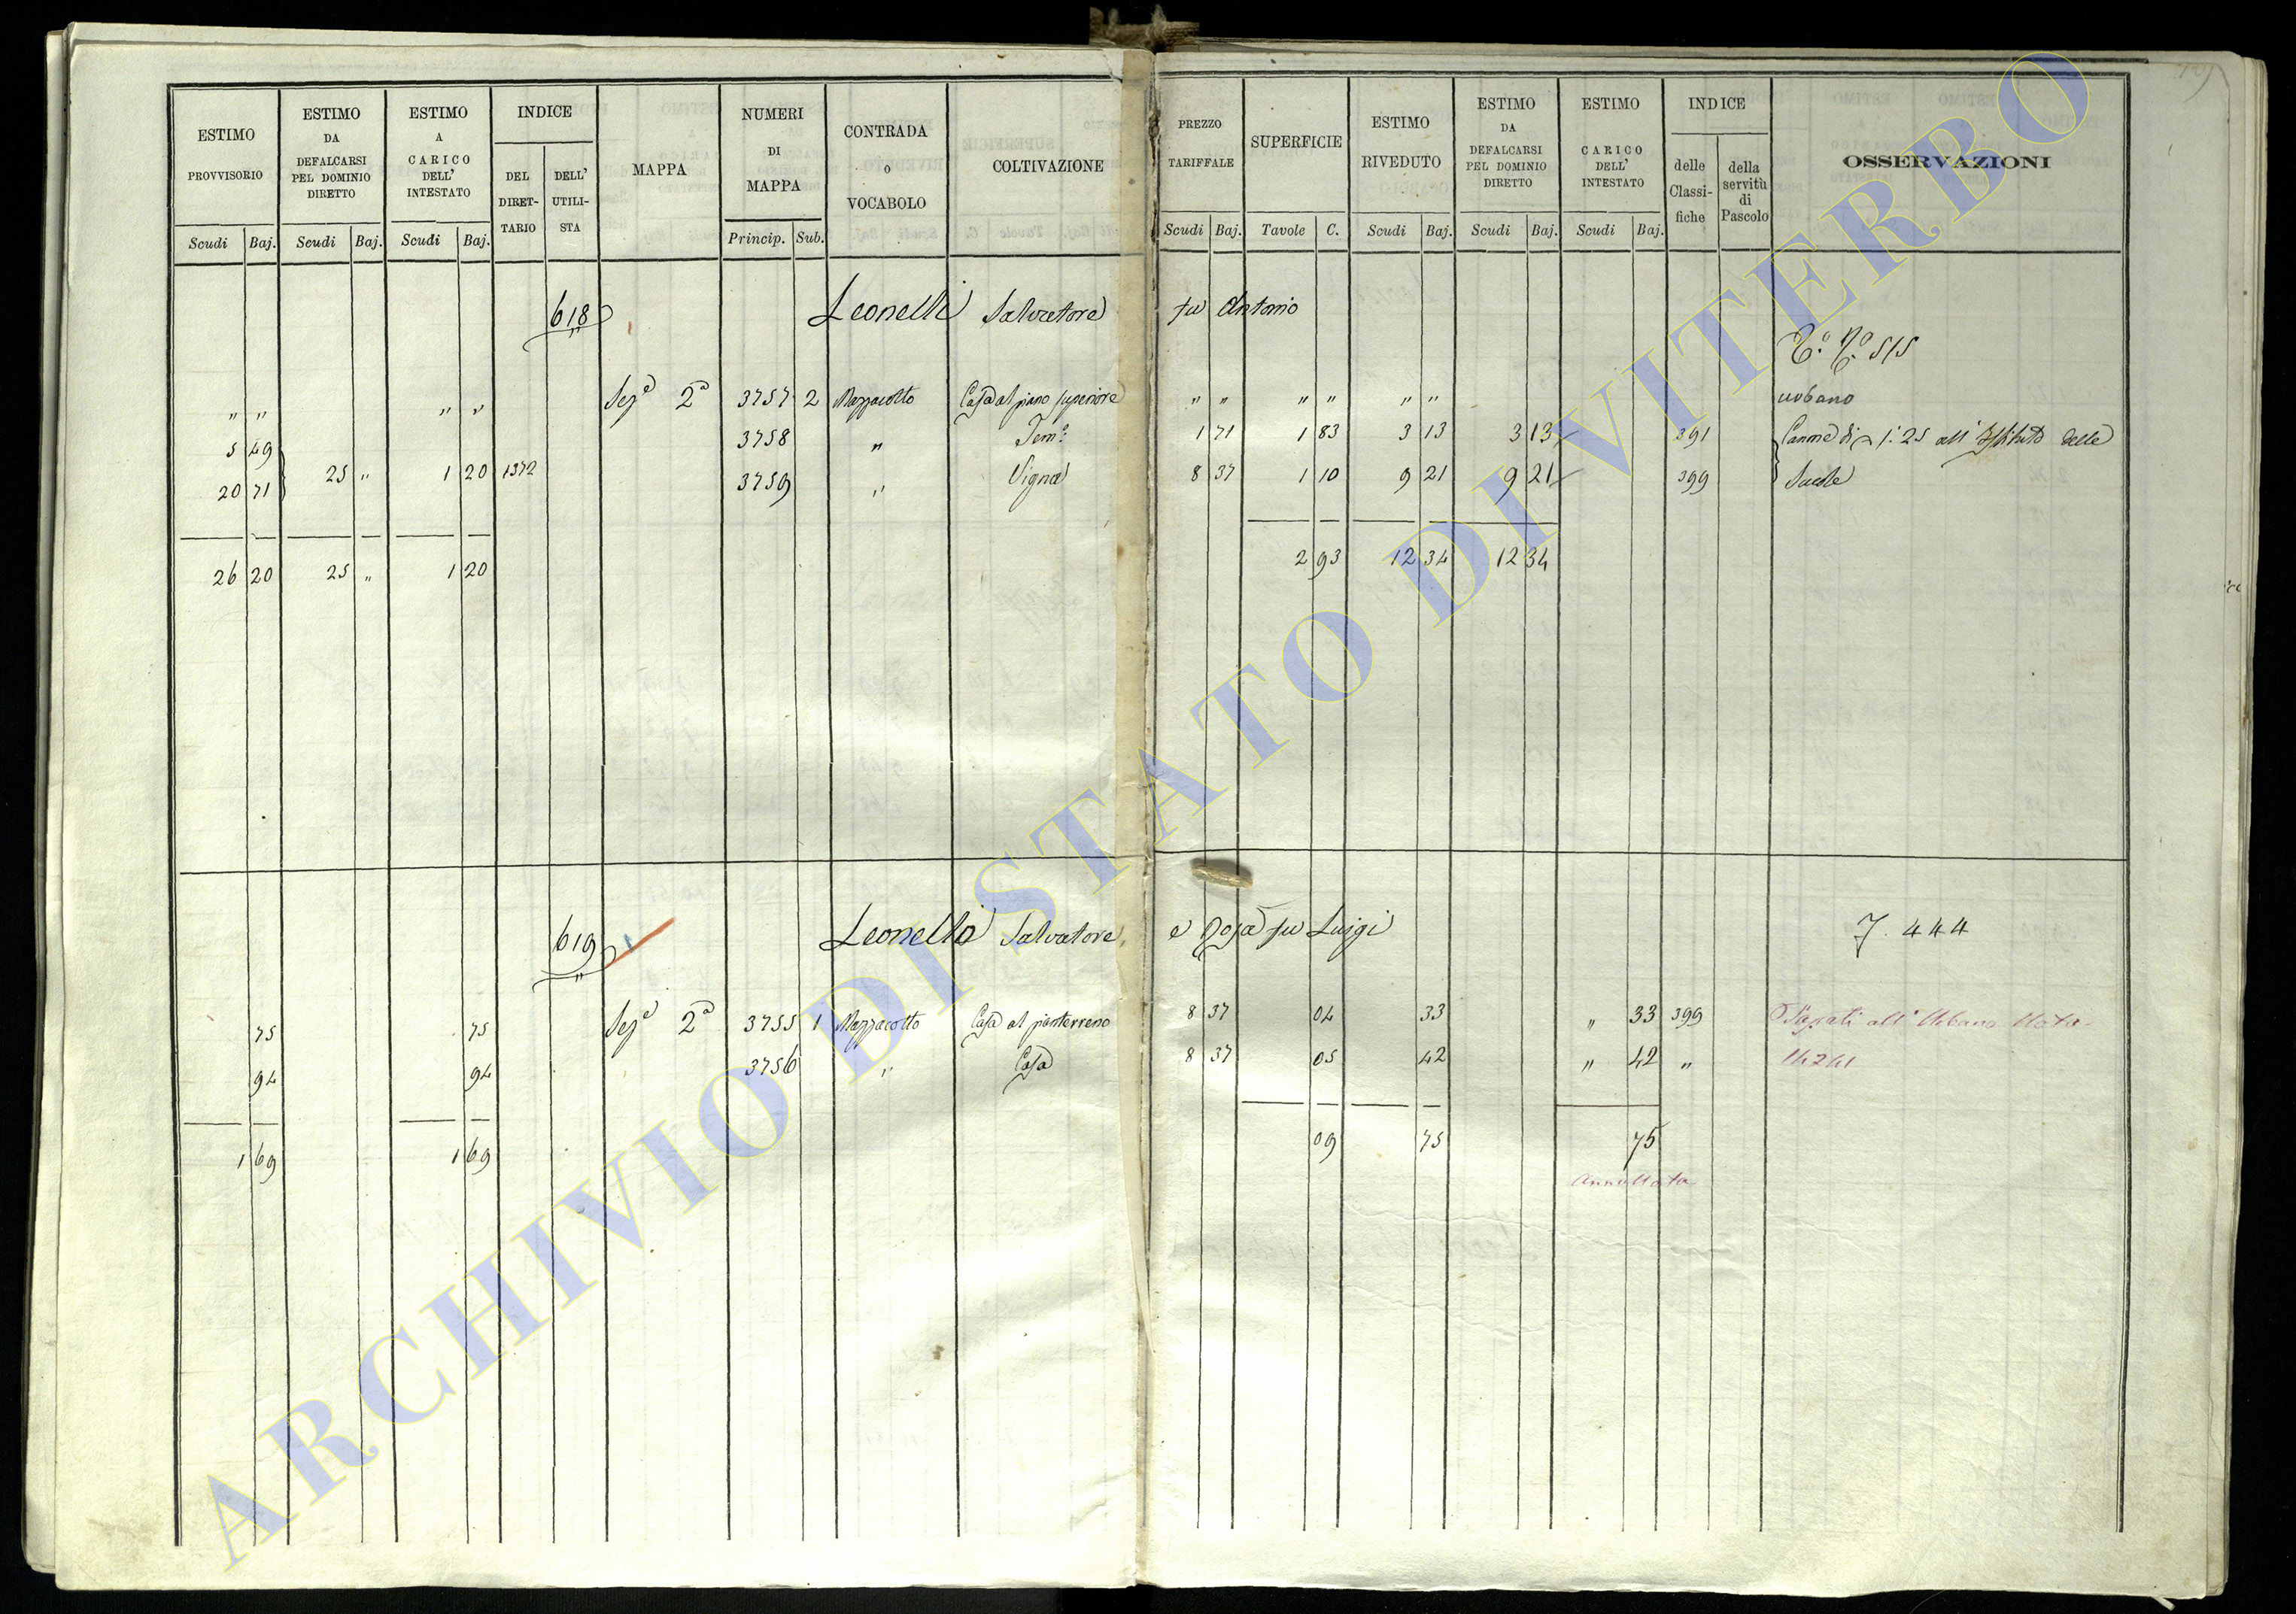 ESTIMO PROVVISORIO | ESTIMO DA DEFALCARSI PEL DOMINIO DIRETTO | ESTIMO A CARICO DELL' INTESTATO | INDICE | MAPPA | NUMERI DI MAPPA | CONTRADA o VOCABOLO | COLTIVAZIONE | PREZZO TARIFFALE | SUPERFICIE | ESTIMO RIVEDUTO | ESTIMO DA DEFALCARSI PEL DOMINIO DIRETTO | ESTIMO A CARICO DELL' INTESTATO | INDICE | OSSERVAZIONI
DEL DIRET-TARIO | DELL' UTILI-STA | delle Classi-fiche | della servitù di Pascolo
Scudi | Baj. | Scudi | Baj. | Scudi | Baj. | Princip. | Sub. | Scudi | Baj. | Tavole | C. | Scudi | Baj. | Scudi | Baj. | Scudi | Baj.
618 Leonelli Salvatore fu Antonio
515
" " | " " | Sez.e 2a | 3757 | 2 | Mazzacotto | Casa al piano superiore | " " | " " | " " | urbano
5 49 | 3758 | " | Sem.o | 1 71 | 1 83 | 3 13 | 3 13 | 391 | Canone di 1:25 all' Istituto delle
20 71 | 25 " | 1 20 | 1372 | 3759 | " | Vigna | 8 37 | 1 10 | 9 21 | 9 21 | 399
26 20 | 25 " | 1 20 | 2 93 | 12 34 | 12 34
619 Leonelli Salvatore e Rosa fu Luigi 7. 444
75 | 75 | Sez.e 2a | 3755 | 1 | Mazzacotto | Casa al pianterreno | 8 37 | 04 | 33 | " 33 | 399 | all' Urbano
94 | 94 | 3756 | " | Casa | 8 37 | 05 | 42 | " 42 | "
1 69 | 1 69 | 09 | 75 | 75
Annullata
ARCHIVIO DI STATO DI VITERBO